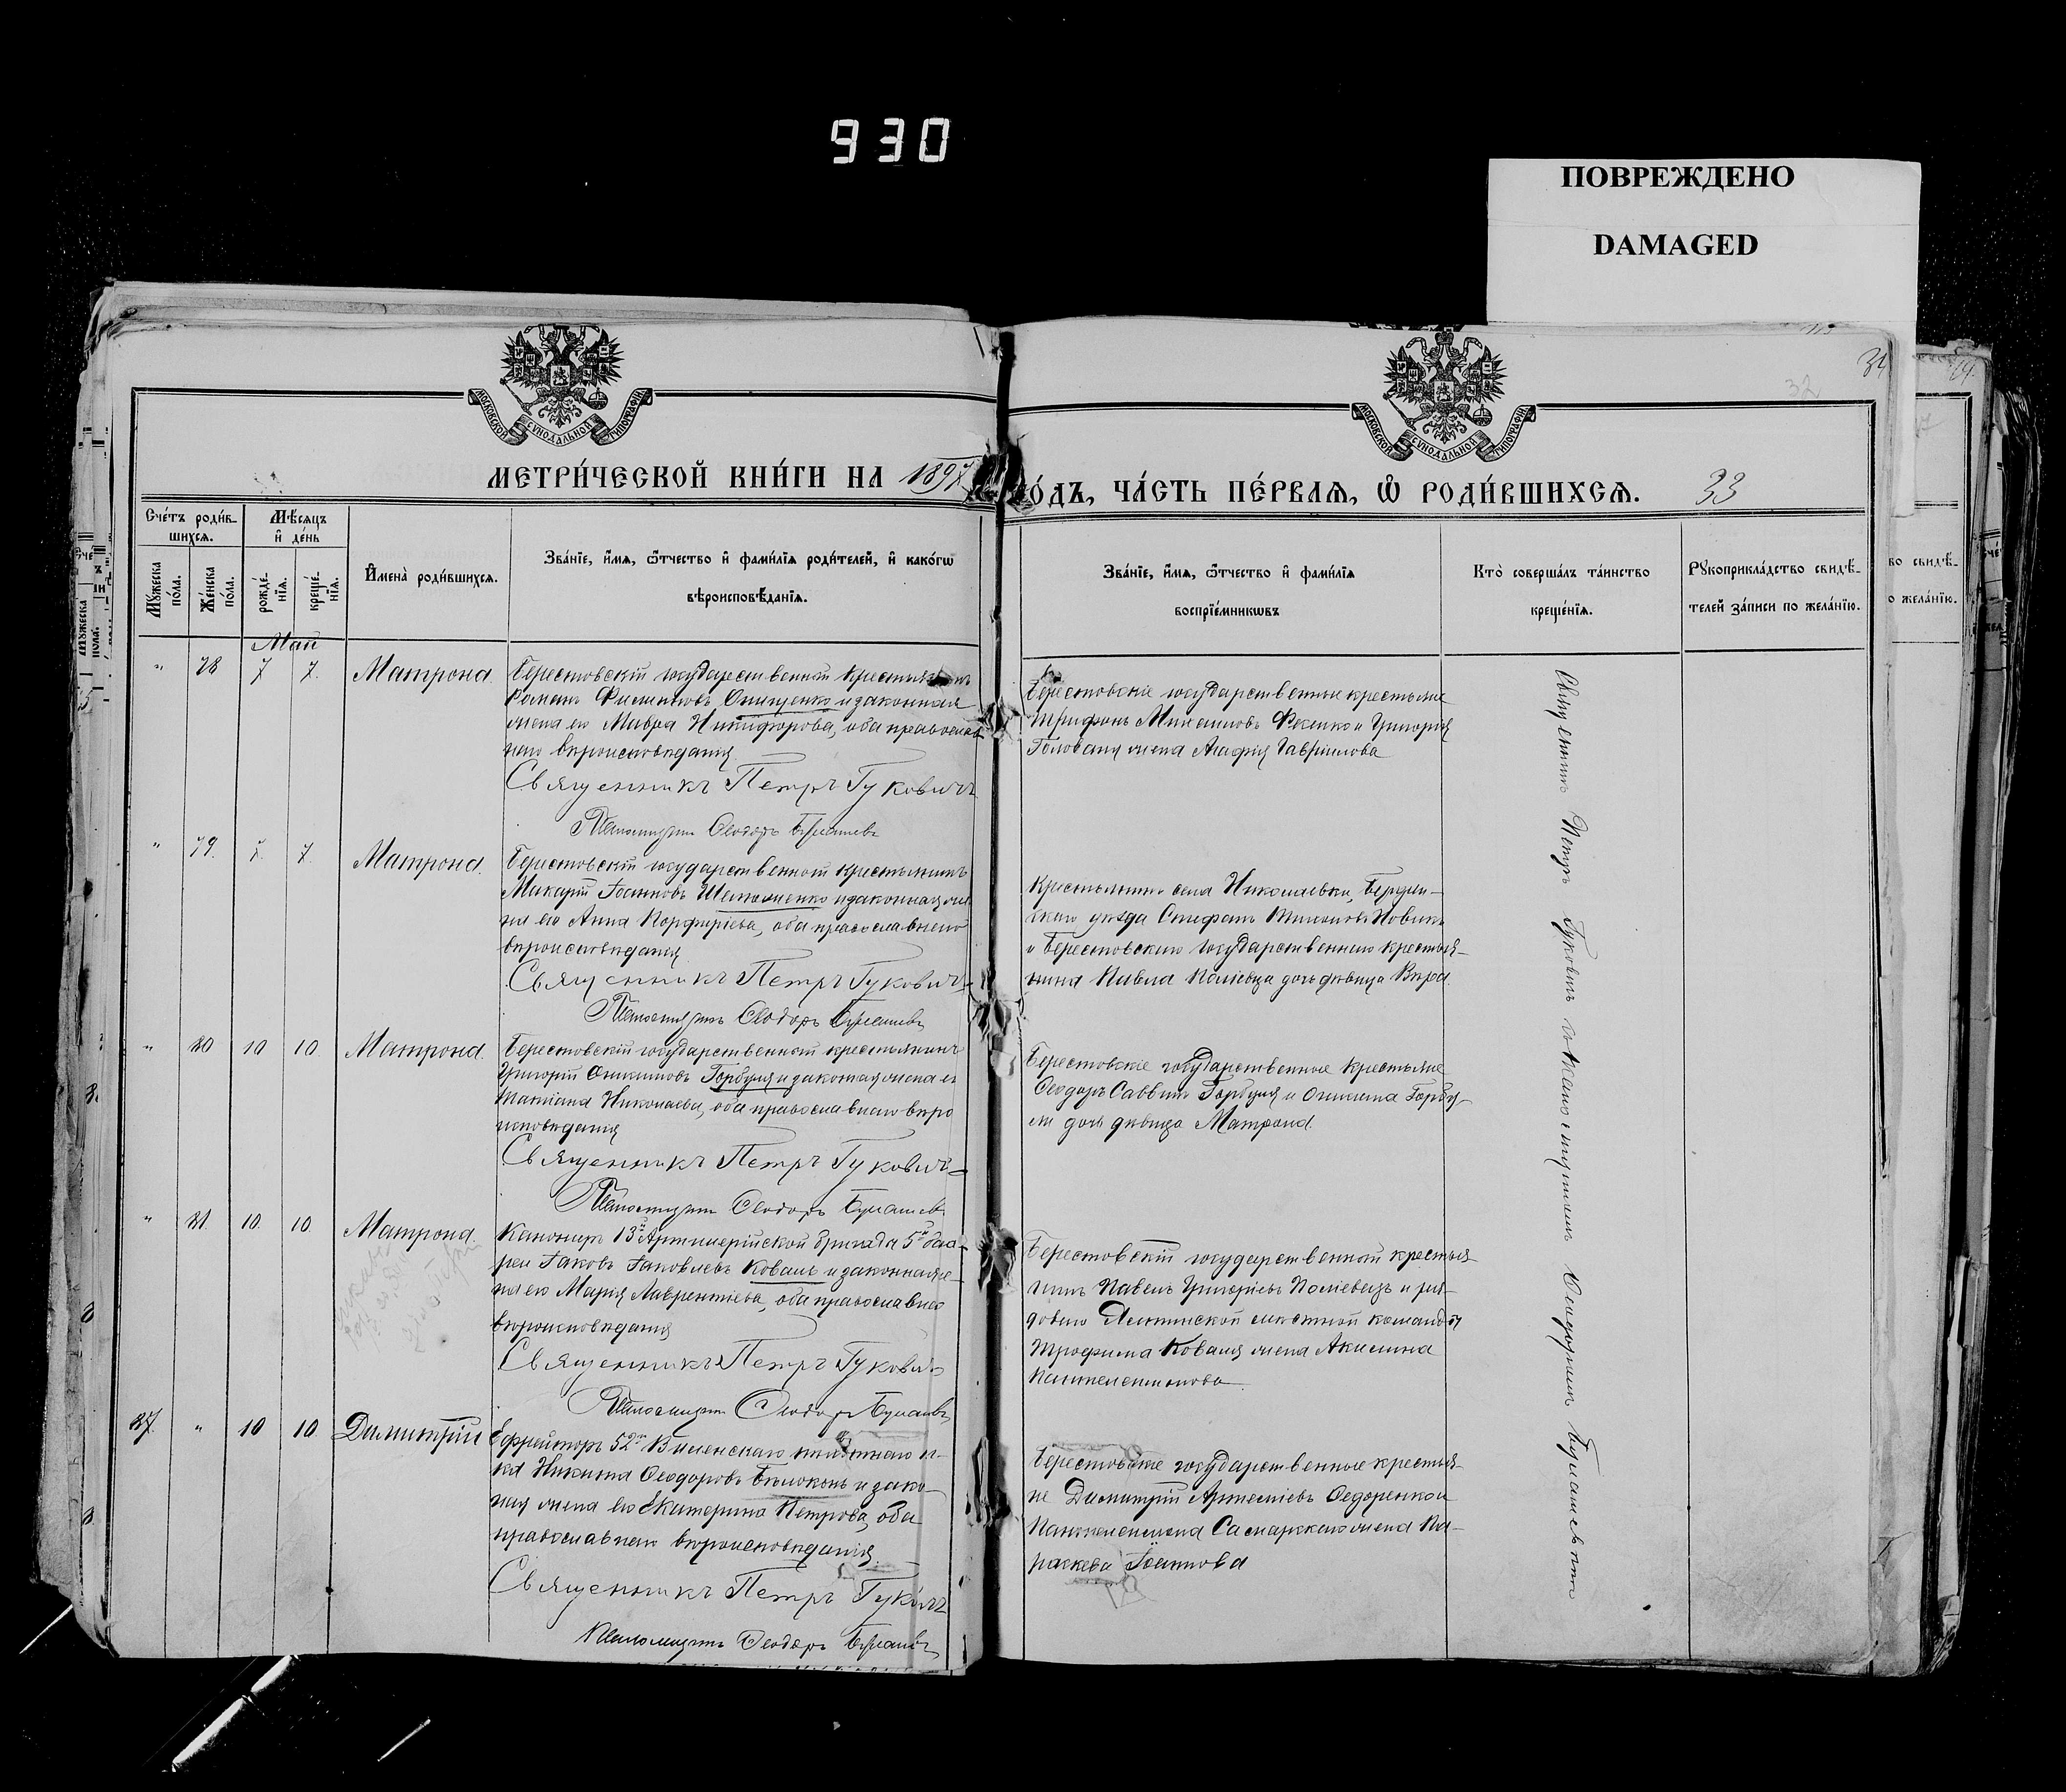 930
ПОВРЕЖДЕНО
DAMAGED
МОСКОВСКОЙ СѴНОДАЛЬНОЙ ТИПОГРАФІИ
МОСКОВСКОЙ СѴНОДАЛЬНОЙ ТИПОГРАФІИ
34
32
МЕТРИ́ЧЕСКОЙ КНИ́ГИ НА 1897
ГО́ДЪ, ЧА́СТЬ ПЕ́РВАѦ, Ѽ РОДИ́ВШИХСѦ. 33
Сче́тъ роди́в-
шихсѧ.
Мꙋ́жеска по́ла.
Же́нска по́ла.
Мѣ́сѧцъ и҆ де́нь
рожде́-нїѧ.
креще́-нїѧ.
И҆мена̀ роди́вшихсѧ.
Зва́нїе, и҆́мѧ, ѻ҆́тчество и҆ фами́лїѧ роди́телей, и҆ како́гѡ
вѣроисповѣ́данїѧ.
Зва́нїе, и҆́мѧ, ѻ҆́тчество и҆ фами́лїѧ
воспрїе́мникѡвъ
Кто̀ соверша́лъ та́инство
креще́нїѧ.
Рꙋкоприкла́дство свидѣ́-
телей за́писи по жела́нїю.
Май
" 78 7 7. Матрона.
Берестовскій государственный крестьянинъ
Романъ Филиповъ Онищенко и законная
жена его Мавра Никифорова, оба православ
наго вѣроисповѣданія
Священникъ Петръ Гуковичъ
Псаломщикъ Ѳеодоръ
Берестовскіе государственные крестьяне
Трифонъ Фесенко и Григорія
Голованя жена Агафія Гавріилова
" 79. 7. 7. Матрона.
Берестовскій государственный крестьянинъ
Макарій Іоанновъ и законная же
на его Анна Порфиріева, оба православнаго
вѣроисповѣданія
Священникъ Петръ Гуковичъ
Псаломщикъ Ѳеодоръ
Крестьянинъ села Николаевки, Бердян-
скаго уѣзда Стефанъ Новикъ
и Берестовскаго государственнаго крестья-
нина Павла дочь дѣвица Вѣра.
" 80 10 10. Матрона.
Берестовскій государственный крестьянинъ
Григорій Онисимовъ Горбуля и законная жена его
Татіана Николаева, оба православнаго вѣро
исповѣданія
Священникъ Петръ Гуковичъ
Псаломщикъ Ѳеодоръ
Берестовскіе государственные крестьяне
Ѳеодоръ Саввинъ Горбуля и Онисима Горбу-
ли дочь дѣвица Матрона.
" 81. 10. 10 Матрона.
Канониръ 13й Артиллерійской бригады 5й бата-
реи Іаковъ Іаковлевъ Коваль и законная же-
на его Марія Лаврентіева, оба православнаго
вѣроисповѣданія
Священникъ Петръ Гуковичъ
Псаломщикъ Ѳеодоръ
Берестовскій государственный крестья-
нинъ Павелъ Григорьевъ и ря-
доваго Ялтинской мѣстной команды
Трофима Коваля жена Акилина
Пантелеимонова.
87. " 10 10 Димитрій
Ефрейторъ 52го Виленскаго пѣхотнаго пол-
ка Никита Ѳеодоровъ Бѣлоконь и закон-
ная жена его Екатерина Петрова, оба
православнаго вѣроисповѣданія.
Священникъ Петръ Гуковичъ
Псаломщикъ Ѳеодоръ
Берестовскіе государственные крестья-
не Димитрій Артеміевъ Ѳедоренко и
Пантелеимона Самарскаго жена Па-
раскева Іоаннова
Священникъ Петръ Гуковичъ съ псаломщикомъ Ѳеодоромъ